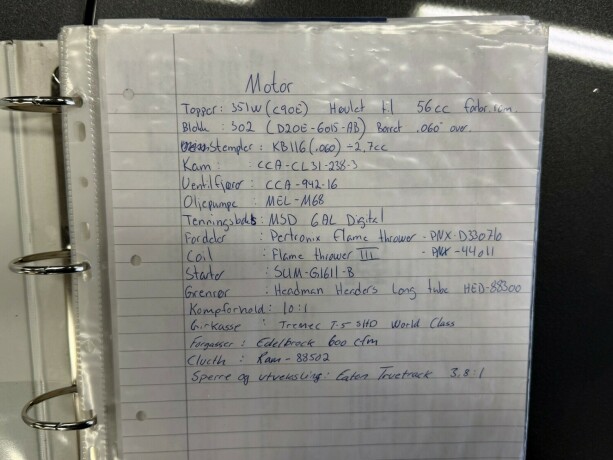 Motor
Topper: 351W (C90E) Høvlet til 56cc forbr.rom.
Blokk: 302 (D20E-6015-AB) Boret .060" over.
Stempler: KB116 (.060) -2,7cc
Kam: CCA-CL31-238-3
Ventilfjører: CCA-942-16
Oljepumpe: MEL-M68
Tenningsboks: MSD 6AL Digital
Fordeler: Pertronix Flame thrower - PNX-D330710
Coil: Flame thrower III - PNX-44011
Starter: SUM-G1611-B
Grenrør: Headman Headers Long tube HED-88300
Kompforhold: 10:1
Girkasse: Tremec T-5 SHD World Class
Forgasser: Edelbrock 600 cfm
Clucth: Ram-88502
Sperre og utveksling: Eaton Truetrack 3,8:1